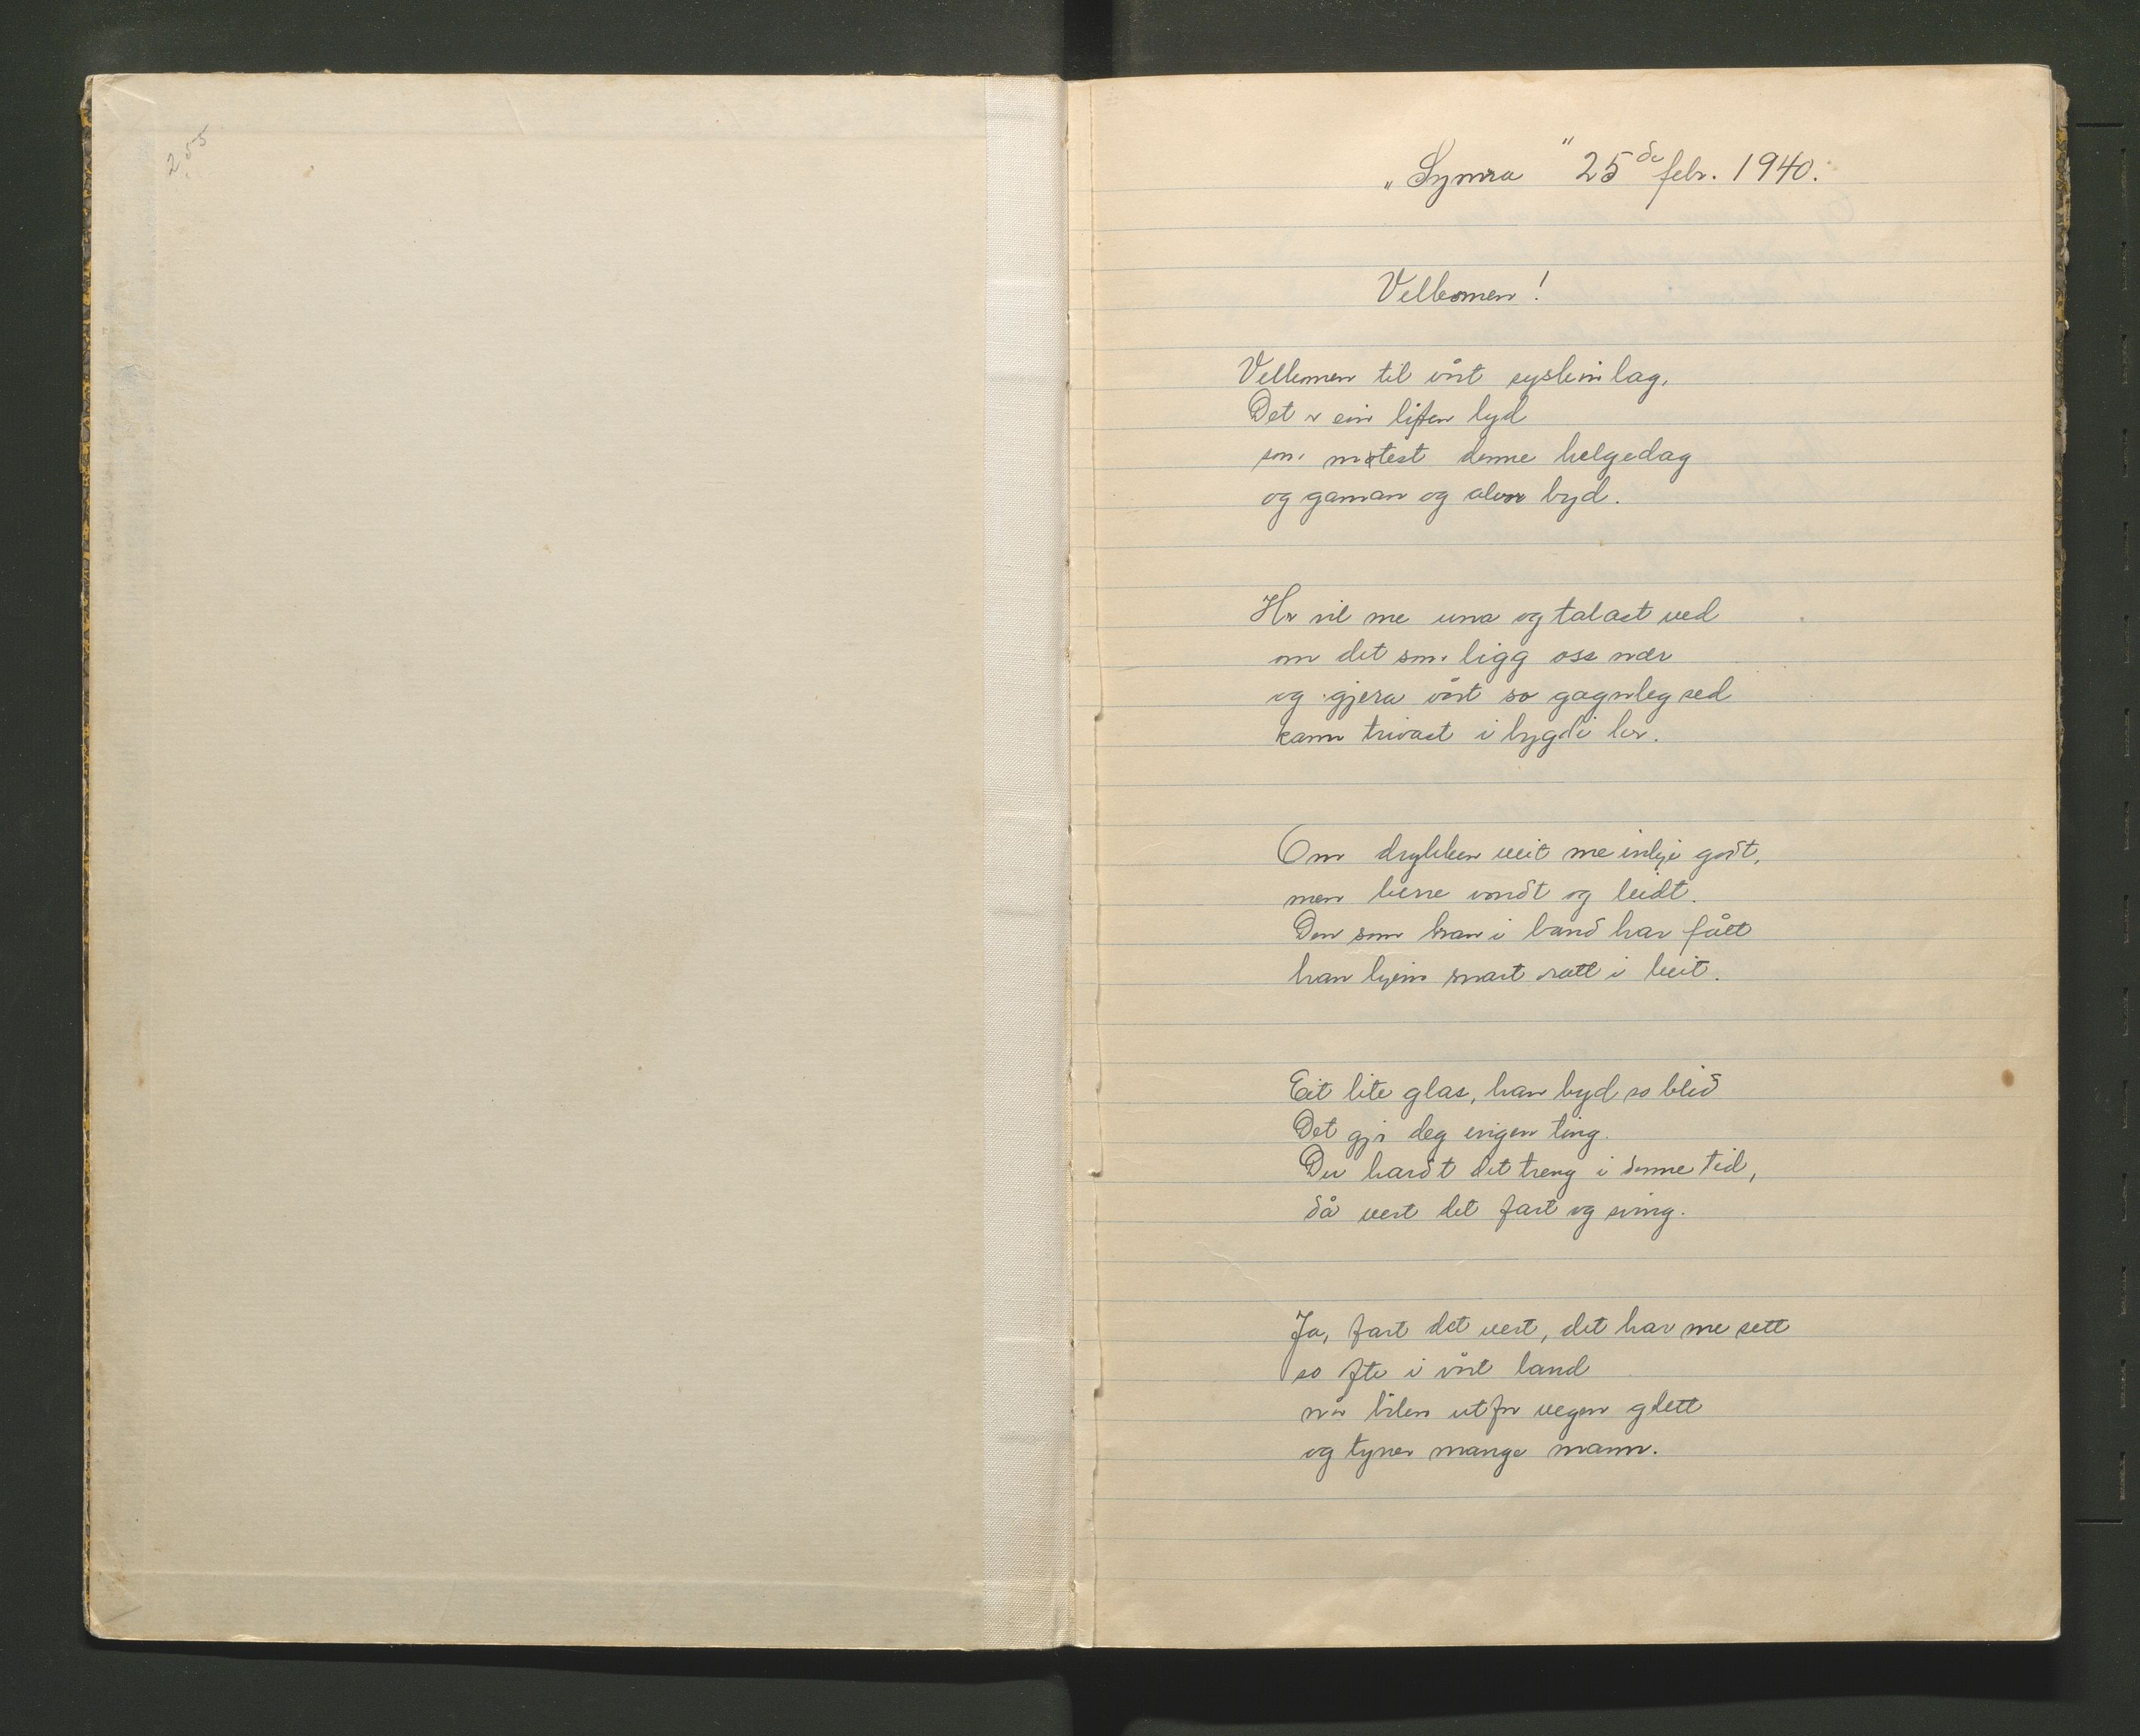 2.55
„Symra" 25de febr. 1940.
Velkomen!
Velkomen til vårt syskenlag,
Det er ein liten lyd
som møtest denne helgedag
og gaman og alvor byd.
Her vil me una og talast ved
om det som ligg oss nær
og gjera vårt so gagnleg sed
kann trivast i bygdi her.
Om drykken veit me inkje godt,
men berre vondt og leidt.
Den som han i band har fått
han kjem snart ratt i beit.
Eit lite glas, han byd so blid
Det gjer deg ingen ting.
Du hardt det treng i denne tid,
då vert det fart og sving.
Ja, fart det vert, det har me sett
so ofte i vårt land
når bilen utfor vegen glett
og tyner mange mann.